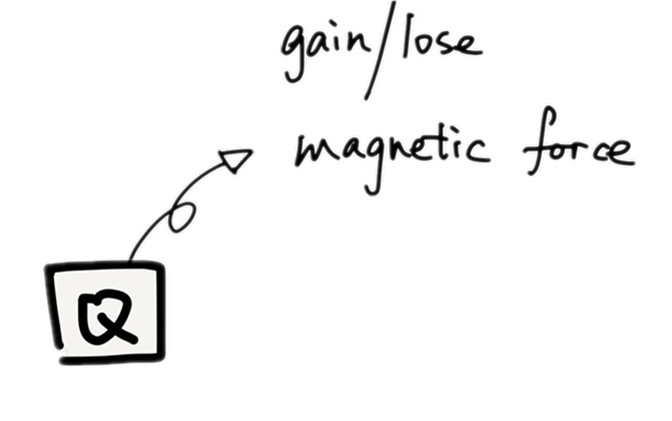 gain/lose
magnetic force
Q